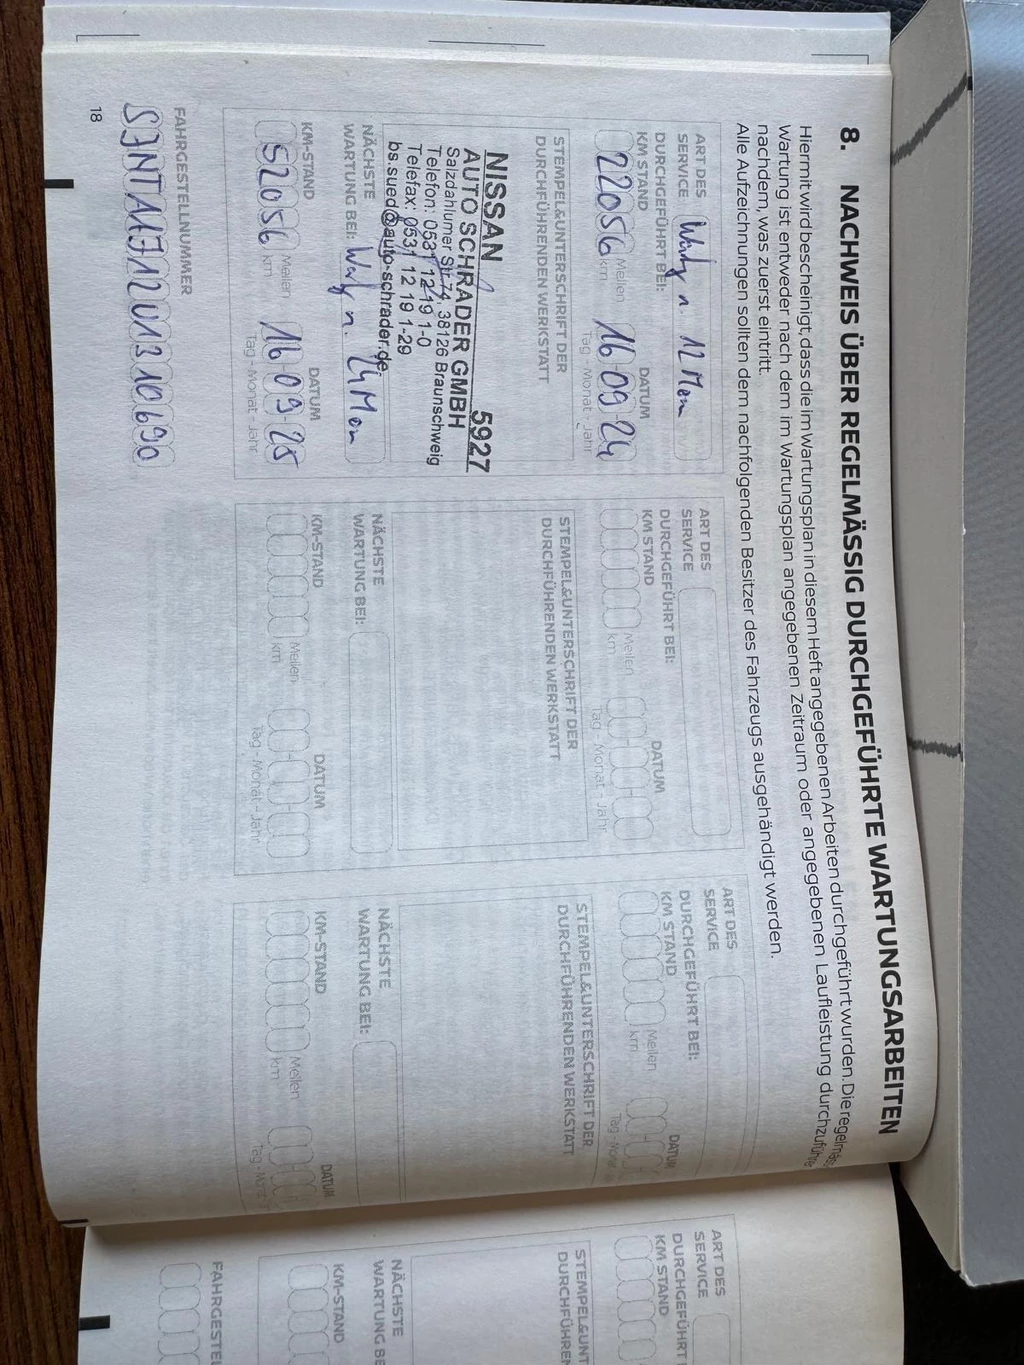 8. NACHWEIS ÜBER REGELMÄSSIG DURCHGEFÜHRTE WARTUNGSARBEITEN
Hiermit wird bescheinigt, dass die im Wartungsplan in diesem Heft angegebenen Arbeiten durchgeführt wurden. Die regelmäs
Wartung ist entweder nach dem im Wartungsplan angegebenen Zeitraum oder angegebenen Laufleistung durchzuführe
nachdem, was zuerst eintritt.
Alle Aufzeichnungen sollten dem nachfolgenden Besitzer des Fahrzeugs ausgehändigt werden.
ART DES
SERVICE
n. 12 Mon
DURCHGEFÜHRT BEI:
KM STAND DATUM
22056 Meilen km 16-09-24
Tag - Monat - Jahr
STEMPEL&UNTERSCHRIFT DER
DURCHFÜHRENDEN WERKSTATT
NISSAN 5927
AUTO SCHRADER GMBH
Salzdahlumer Str. 74, 38126 Braunschweig
Telefon: 0531 12 19 1-0
Telefax: 0531 12 19 1-29
bs.sued@auto-schrader.de
NÄCHSTE
WARTUNG BEI: n. 24 Mon
KM-STAND DATUM
52056 Meilen km 16-09-25
Tag - Monat - Jahr
ART DES
SERVICE
DURCHGEFÜHRT BEI:
KM STAND DATUM
Meilen
km Tag - Monat - Jahr
STEMPEL&UNTERSCHRIFT DER
DURCHFÜHRENDEN WERKSTATT
NÄCHSTE
WARTUNG BEI:
KM-STAND DATUM
Meilen
km Tag - Monat - Jahr
ART DES
SERVICE
DURCHGEFÜHRT BEI:
KM STAND DATUM
Meilen
km Tag - Monat
STEMPEL&UNTERSCHRIFT DER
DURCHFÜHRENDEN WERKSTATT
NÄCHSTE
WARTUNG BEI:
KM-STAND DATUM
Meilen
km Tag - Monat
FAHRGESTELLNUMMER
SJNTAAJ12U1310690
18
ART DES
SERVICE
DURCHGEFÜHRT
KM STAND
STEMPEL&UNT
DURCHFÜHREN
NÄCHSTE
WARTUNG BE
KM-STAND
FAHRGESTEL